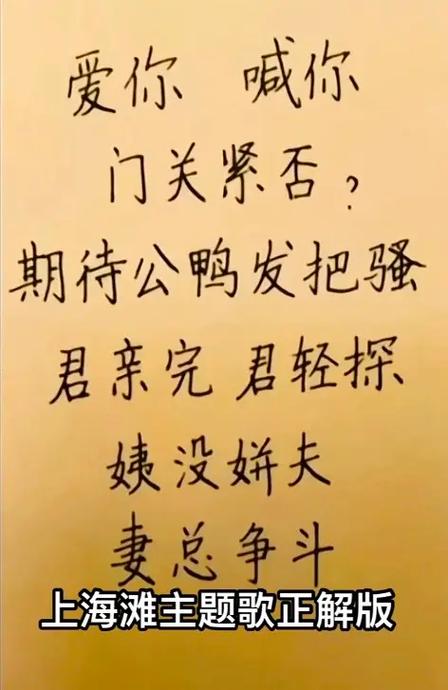 爱你 喊你
门关紧否?
期待公鸭发把骚
君亲完 君轻探
姨没姘夫
妻总争斗
上海滩主题歌正解版